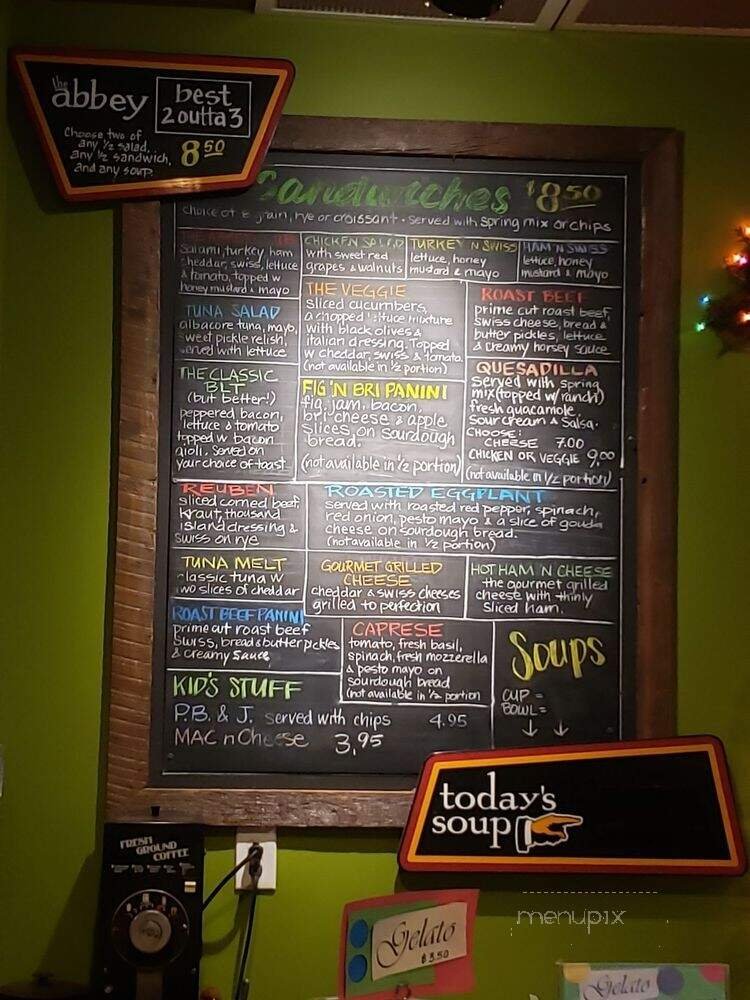 the
abbey
best
2 outta 3
Choose two of
any ½ salad,
any ½ sandwich,
and any soup.
8 50
Sandwiches $8 50
choice of 8 grain, rye or croissant • served with spring mix or chips
salami, turkey, ham
cheddar, swiss, lettuce
& tomato, topped w
honey mustard & mayo
CHICKEN SALAD
with sweet red
grapes & walnuts
TURKEY N SWISS
lettuce, honey
mustard & mayo
HAM N SWISS
lettuce, honey
mustard & mayo
TUNA SALAD
albacore tuna, mayo,
sweet pickle relish,
served with lettuce
THE VEGGIE
sliced cucumbers,
a chopped lettuce mixture
with black olives &
italian dressing. Topped
w cheddar, swiss & tomato.
(not available in ½ portion)
ROAST BEEF
prime cut roast beef,
swiss cheese, bread &
butter pickles, lettuce
& creamy horsey sauce
THE CLASSIC
BLT
(but better!)
peppered bacon,
lettuce & tomato
topped w bacon
aioli. Served on
your choice of toast
FIG 'N BRI PANINI
fig jam, bacon,
bri cheese & apple
slices, on sourdough
bread.
(not available in ½ portion)
QUESADILLA
served with spring
mix (topped w/ ranch)
fresh guacamole
sour cream & Salsa.
CHOOSE:
CHEESE 7.00
CHICKEN OR VEGGIE 9.00
(not available in ½ portion)
REUBEN
sliced corned beef,
kraut, thousand
island dressing &
swiss on rye
ROASTED EGGPLANT
served with roasted red pepper, spinach,
red onion, pesto mayo & a slice of gouda
cheese on sourdough bread.
(not available in ½ portion)
TUNA MELT
classic tuna w
two slices of cheddar
GOURMET GRILLED
CHEESE
cheddar & swiss cheeses
grilled to perfection
HOT HAM N CHEESE
the gourmet grilled
cheese with thinly
sliced ham.
ROAST BEEF PANINI
prime cut roast beef
swiss, bread & butter pickles
& creamy sauce
CAPRESE
tomato, fresh basil,
spinach, fresh mozzerella
& pesto mayo on
sourdough bread
(not available in ½ portion
Soups
CUP =
BOWL =
KID'S STUFF
P.B. & J. served with chips 4.95
MAC n Cheese 3.95
today's
soup
FRESH
GROUND
COFFEE
Gelato
$3.50
menupix
Gelato